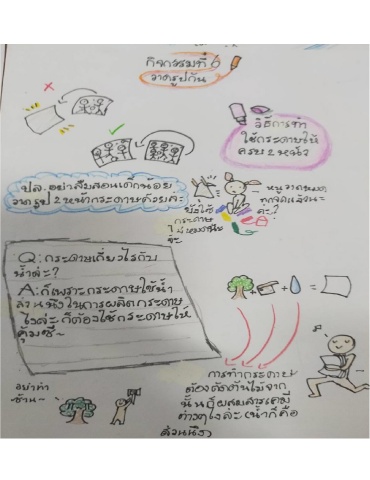 กิจกรรมที่ 6
วาดรูปกัน
วิธีการทำ
ใช้กระดาษให้
ครบ 2 หน้า
ปล. อย่าลืมสอนเด็กน้อย
วาดรูป 2 หน้ากระดาษด้วยค่ะ
หนูวาดหมด
ทุกจุดแล้วนะ
คะ?
กระดาษ
Q: กระดาษเกี่ยวไรกับ
น้ำล่ะ?
A: ก็เพราะกระดาษใช้น้ำ
ส่วนนึงในการผลิตกระดาษ
ไงล่ะ ก็ต้องใช้กระดาษให้
คุ้มซี~
การทำกระดาษ
ต้องตัดต้นไม้จาก
นั้นก็ผสมสารเคมี
ต่างๆไงล่ะ (น้ำก็คือ
ส่วนนึง)
อย่าทำ
ช้าน~